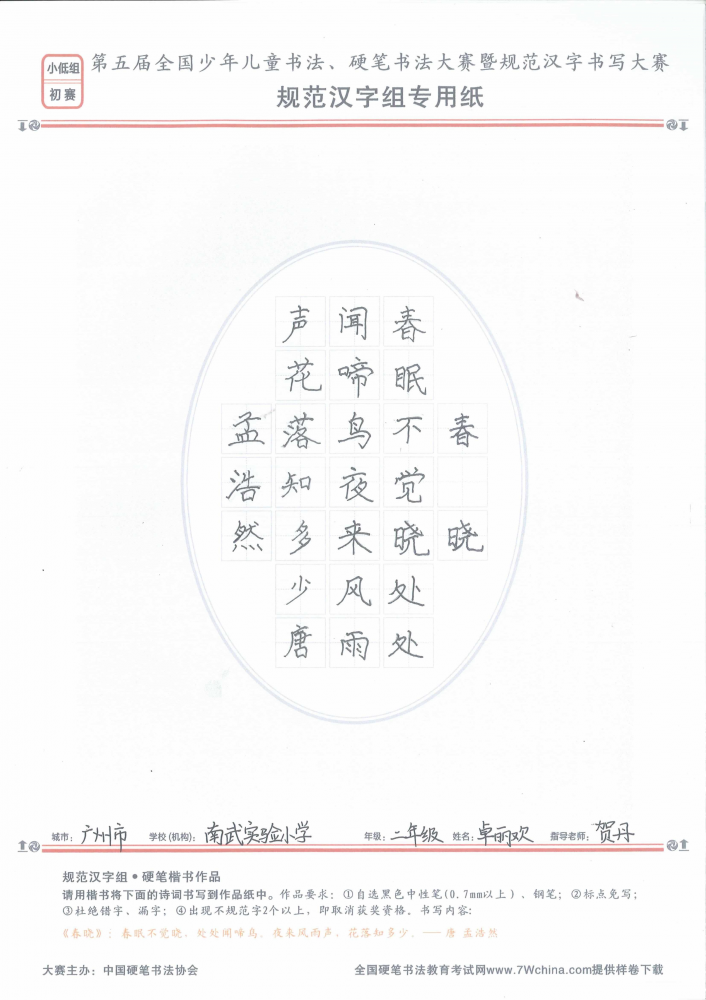 小低组
初赛
第五届全国少年儿童书法、硬笔书法大赛暨规范汉字书写大赛
规范汉字组专用纸
春晓
春眠不觉晓处处
闻啼鸟夜来风雨
声花落知多少唐
孟浩然
城市：广州市 学校(机构)：南武实验小学 年级：二年级 姓名：卓丽欢 指导老师：贺丹
规范汉字组•硬笔楷书作品
请用楷书将下面的诗词书写到作品纸中。作品要求：①自选黑色中性笔(0.7mm以上)、钢笔；②标点免写；
③杜绝错字、漏字；④出现不规范字2个以上，即取消获奖资格。书写内容：
《春晓》：春眠不觉晓，处处闻啼鸟。夜来风雨声，花落知多少。——唐 孟浩然
大赛主办：中国硬笔书法协会 全国硬笔书法教育考试网www.7Wchina.com提供样卷下载